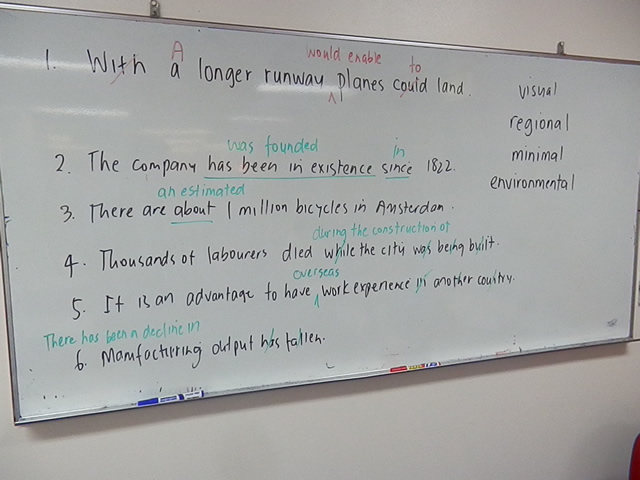 A would enable to
1. With a longer runway planes could land.
was founded in
2. The company has been in existence since 1822.
an estimated
3. There are about 1 million bicycles in Amsterdan.
during the construction of
4. Thousands of labourers died while the city was being built.
overseas
5. It is an advantage to have work experience in another country.
There has been a decline in
6. Manufacturring output has fallen.
visual
regional
minimal
environmental